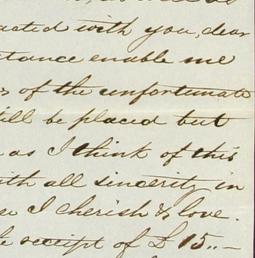 acted with you, dear
stance enable me
of the unfortunate
ill be placed but
as I think of this
ith all sincerity in
I cherish & love.
receipt of £ 15.. —